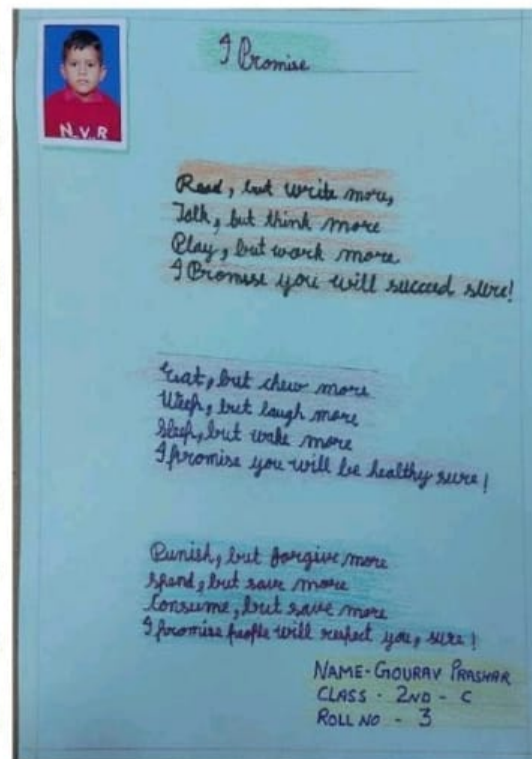 I Promise
N.V.R
Read, but write more,
Talk, but think more
Play, but work more
I Promise you will succeed sure!
Eat, but chew more
Weep, but laugh more
Sleep, but wake more
I promise you will be healthy sure!
Punish, but forgive more
Spend, but save more
Consume, but save more
I promise people will respect you, sure!
NAME-GOURAV PRASHAR
CLASS - 2ND - C
ROLL NO - 3